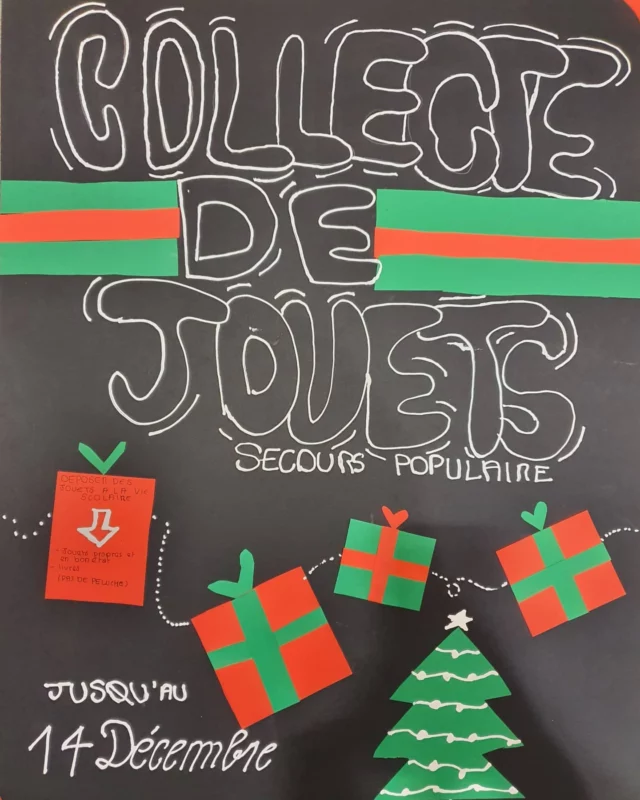 COLLECTE
DE
JOUETS
SECOURS POPULAIRE
DEPOSER DES
JOUETS A LA VIE
SCOLAIRE
- Jouets propres et
en bon état
- Livres
(PAS DE PELUCHE)
JUSQU'AU
14 Décembre